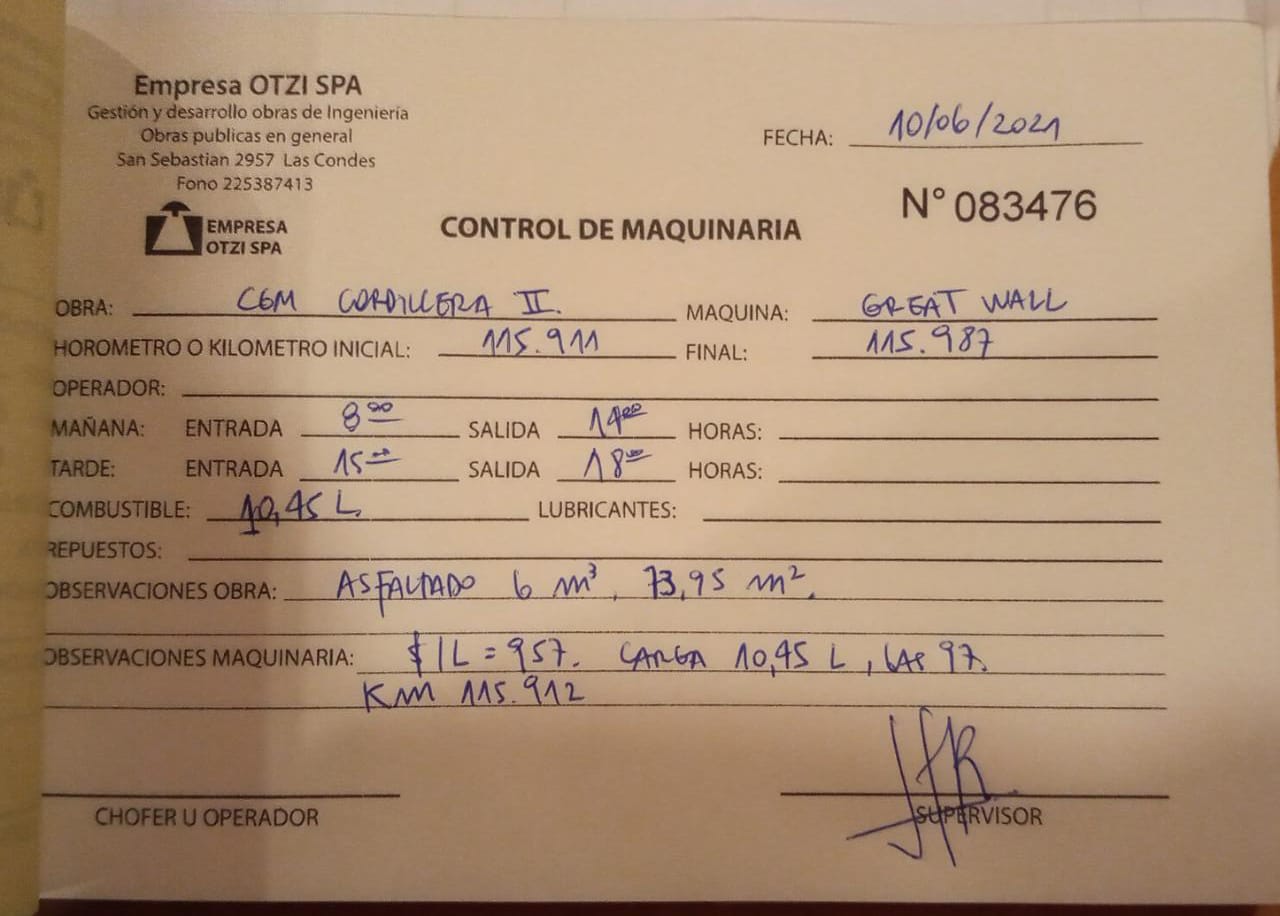 Empresa OTZI SPA
Gestión y desarrollo obras de Ingeniería
Obras publicas en general
San Sebastian 2957 Las Condes
Fono 225387413
EMPRESA
OTZI SPA
FECHA: 10/06/2021
N° 083476
CONTROL DE MAQUINARIA
OBRA: CGM CORDILLERA II. MAQUINA: GREAT WALL
HOROMETRO O KILOMETRO INICIAL: 115.911 FINAL: 115.987
OPERADOR:
MAÑANA: ENTRADA 8:00 SALIDA 14:00 HORAS:
TARDE: ENTRADA 15:00 SALIDA 18:00 HORAS:
COMBUSTIBLE: 10,45 L LUBRICANTES:
REPUESTOS:
OBSERVACIONES OBRA: ASFALTADO 6 m³, 73,95 m².
OBSERVACIONES MAQUINARIA: $/L = 957. CARGA 10,45 L, 97.
KM 115.912
CHOFER U OPERADOR
SUPERVISOR